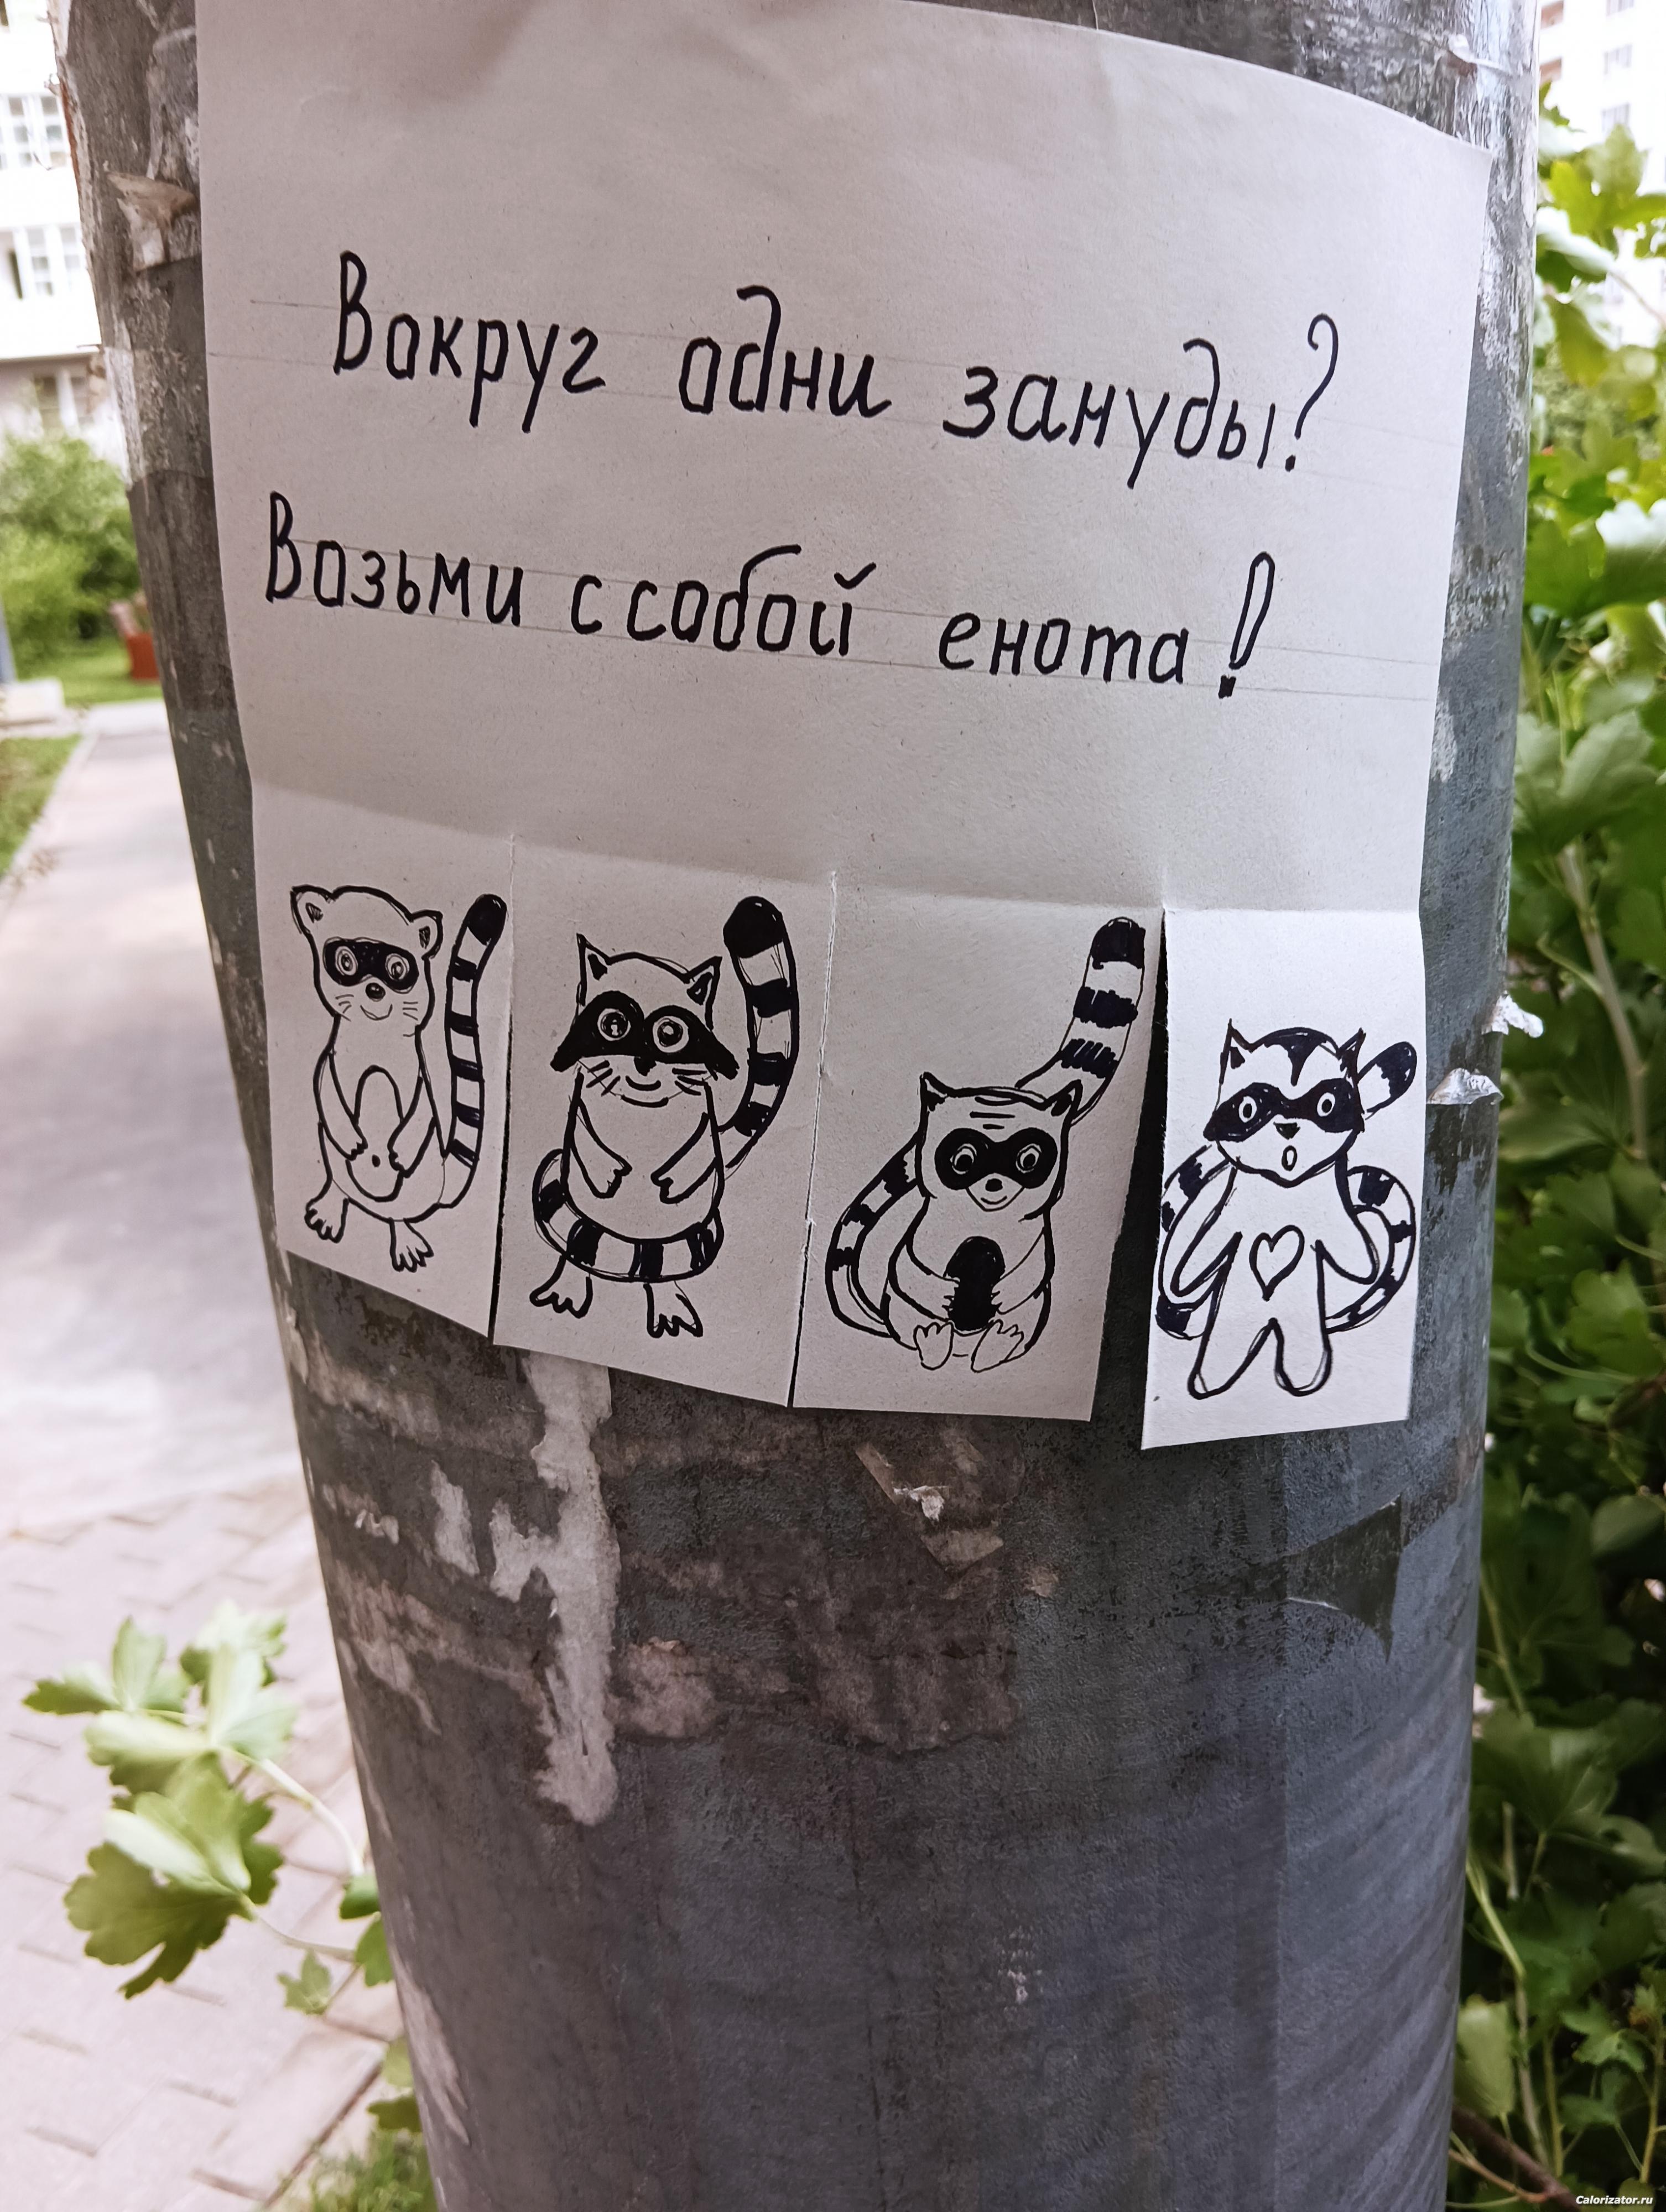 Вокруг одни зануды?
Возьми с собой енота!
Calorizator.ru